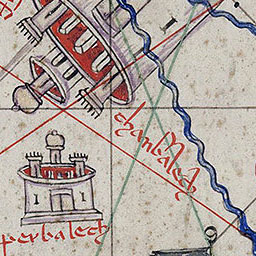 chanbalech
perbalech